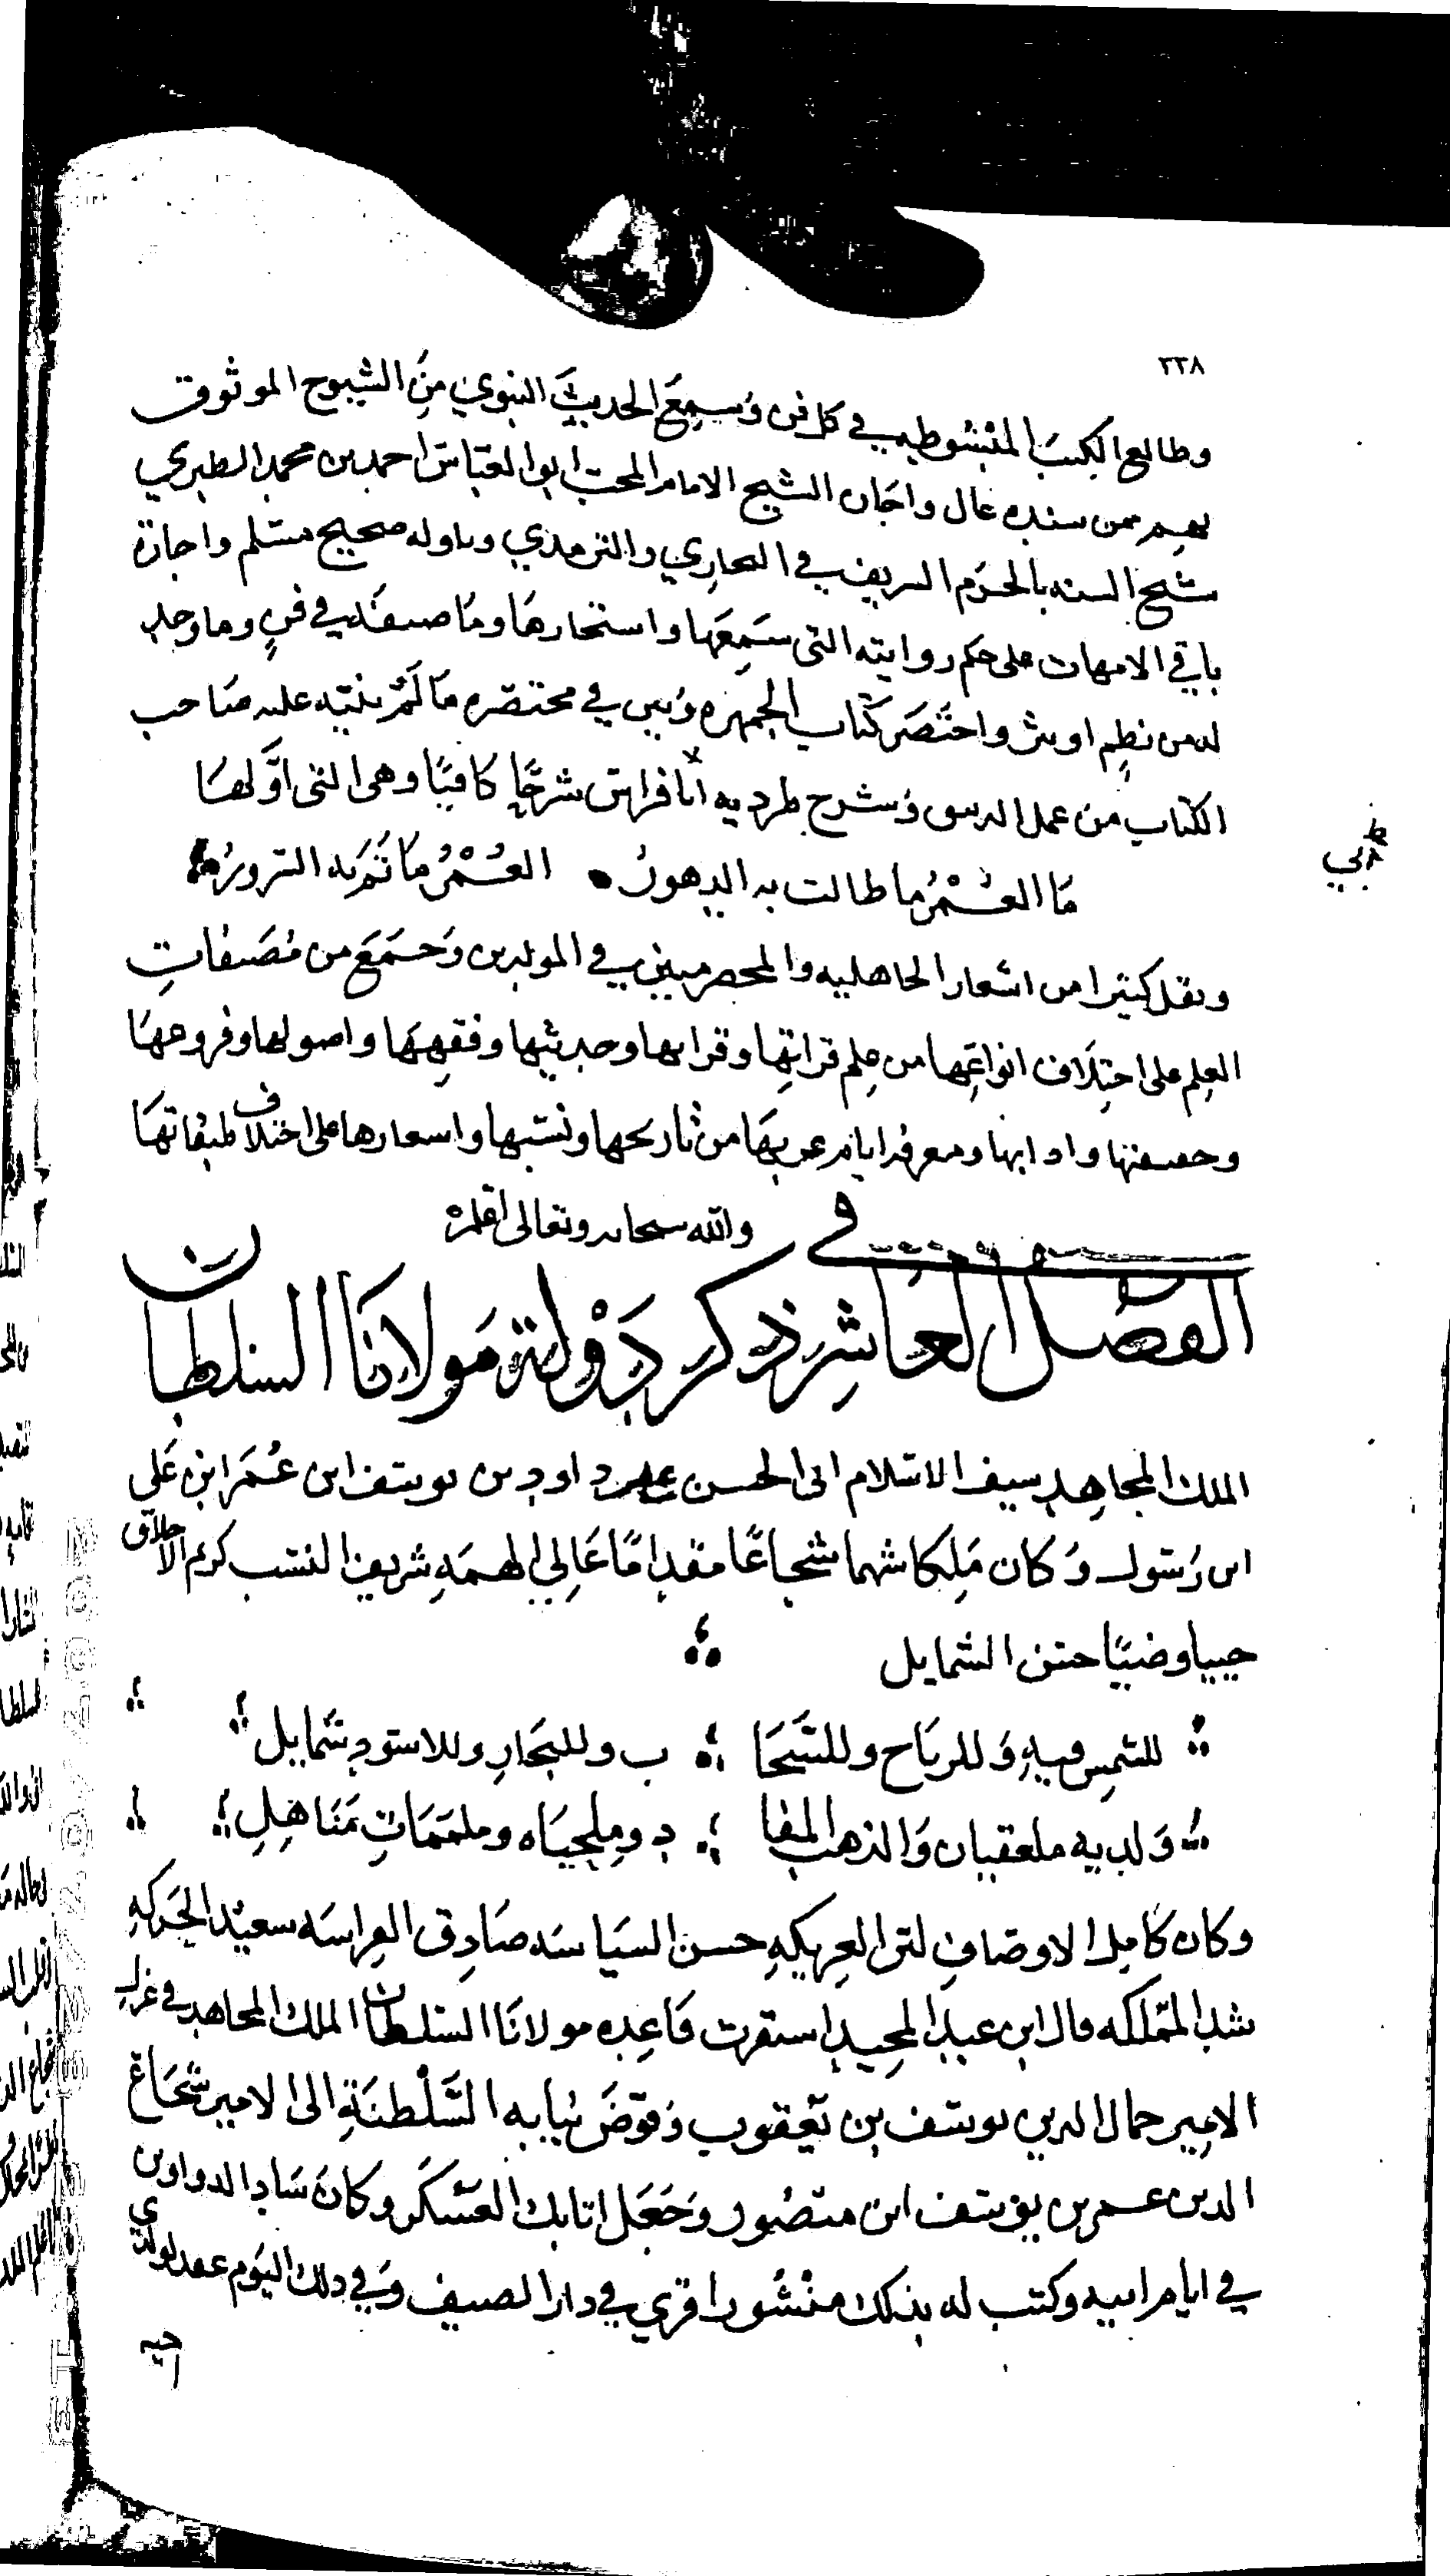 ٢٣٨
وطالع الكتب المبسوطه في كل فن وسمع الحديث النبوي من الشيوخ الموثوق
بهم ممن سنده عال واجازه الشيخ الامام المحب ابو العباس احمد بن محمد الطبري
شيخ السنه بالحرم الشريف في البخاري والترمذي وناوله صحيح مسلم واجازة
باقي الامهات على حكم روايته التي سمعها واستجازها وما صنفه في فن وما وجد
له من نظم او نثر واختصر كتاب الجمهره وبين في مختصره ما لم ينبه عليه صاحب
الكتاب من عمل الدرس وشرح طرديه ابا فراس شرحا كافيا وهي التي اولها
ابي
ما العمر ما طالت به الدهور العمر ما تم به السرور
ونقل كثيرا من اشعار الجاهليه والمخضرمين في المولدين وجمع من مصنفات
العلم على اختلاف انواعها من علم قراتها وقرانها وحديثها وفقهها واصولها وفروعها
وادابها ومعرفة ايام عربها من تاريخها ونسبها واسعارها على اختلاف طبقاتها
والله سبحانه وتعالى اعلم
الفصل العاشر في ذكر دولة مولانا السلطان
الملك المجاهد سيف الاسلام ابي الحسن علي بن داود بن يوسف ابن عمر ابن علي
ابن رسول وكان ملكا شهما شجاعا مقداما عالي الهمه شريف النسب كريم الاخلاق
حييا وضيا حسن الشمايل
للشمس فيه وللرياح وللسحا ب وللبحار وللاسود شمايل
ولديه ملعقيان والذهب المفا د وملحياه وملممات مناهل
وكان كامل الاوصاف لين العريكه حسن السياسه صادق الفراسه سعيد الحركه
شد المملكه قال ابن عبد المجيد استقرت قاعده مولانا السلطان الملك المجاهد في عزل
الامير جمال الدين يوسف بن يعقوب وفوض نيابه السلطنة الى الامير شجاع
الدين عمر بن يوسف ابن منصور وجعل اتابك العسكر وكان شاد الدواوين
في ايام ابيه وكتب له بذلك منشورا قري في دار الضيف وفي ذلك اليوم عقد لولدي
اخيه